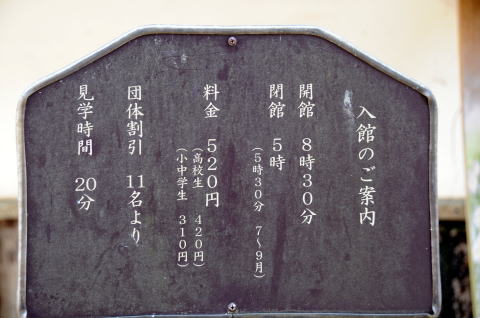 入館のご案内
開館 8時30分
閉館 5時
(5時30分 7～9月)
料金 520円
(高校生 420円)
(小中学生 310円)
団体割引 11名より
見学時間 20分